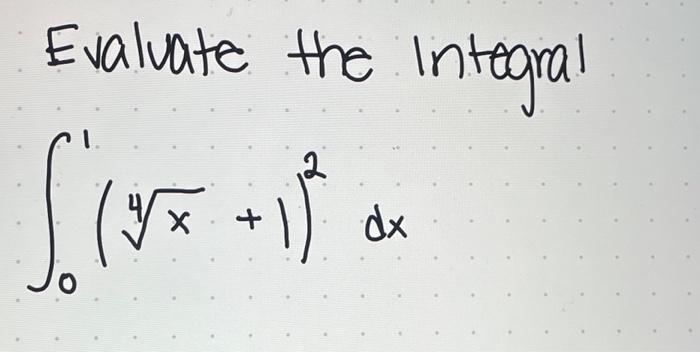 Evaluate the Integral
∫₀¹ (∜x + 1)² dx